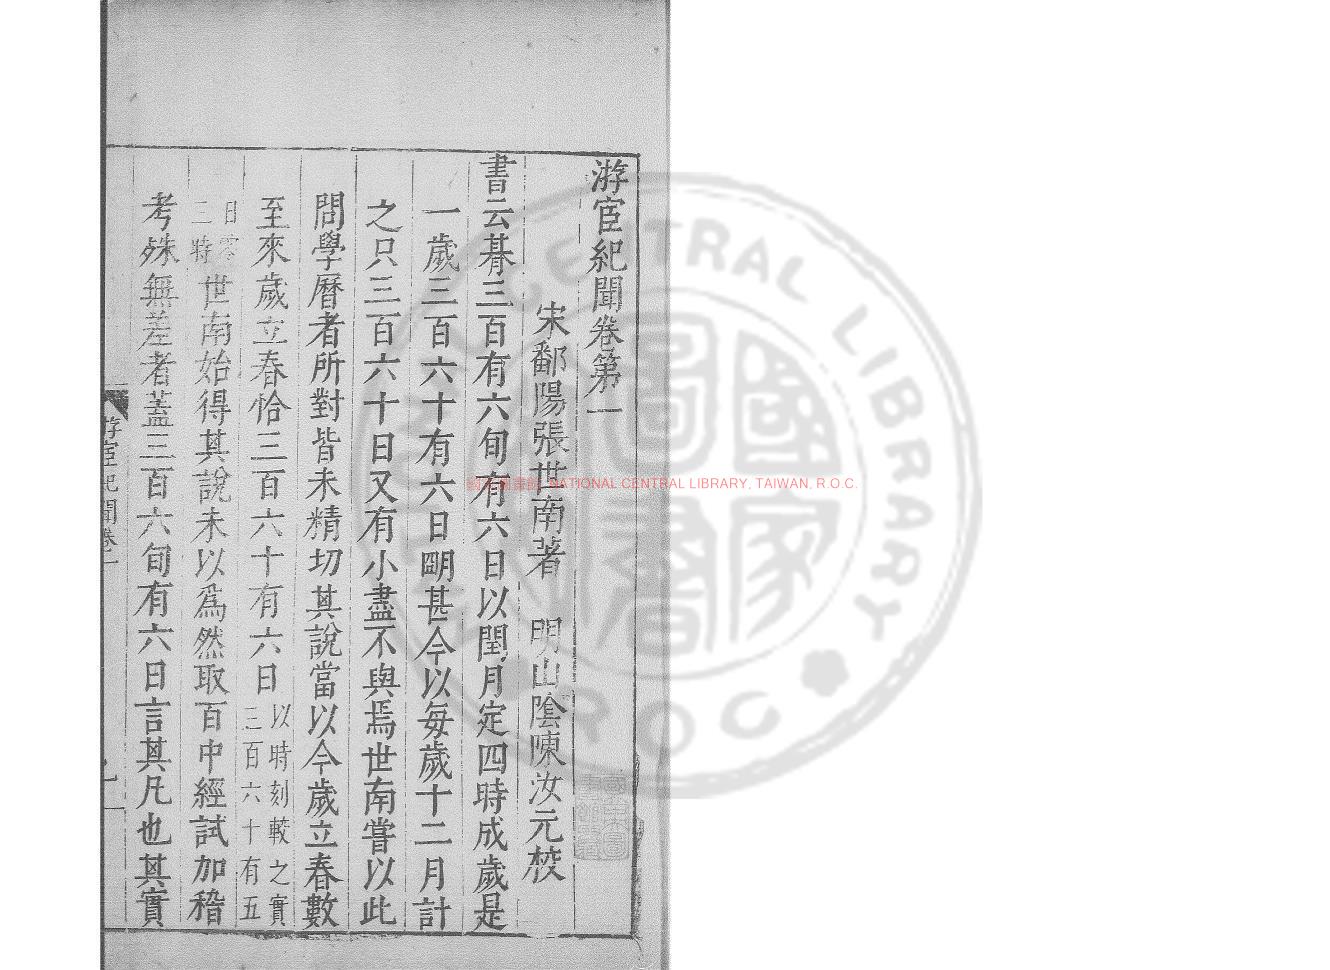 游宦紀聞卷第一
宋鄱陽張世南著　明山陰陳汝元校
書云朞三百有六旬有六日以閏月定四時成歲是
一歲三百六十有六日朙甚今以每歲十二月計
之只三百六十日又有小盡不與焉世南嘗以此
問學曆者所對皆未精切其說當以今歲立春數
至來歲立春恰三百六十有六日以時刻較之實三百六十有五
日零三時世南始得其說未以爲然取百中經試加稽
考殊無差者蓋三百六旬有六日言其凡也其實
游宦紀聞卷一
NATIONAL CENTRAL LIBRARY, TAIWAN, R.O.C.
CENTRAL LIBRARY
R.O.C
國家圖書館